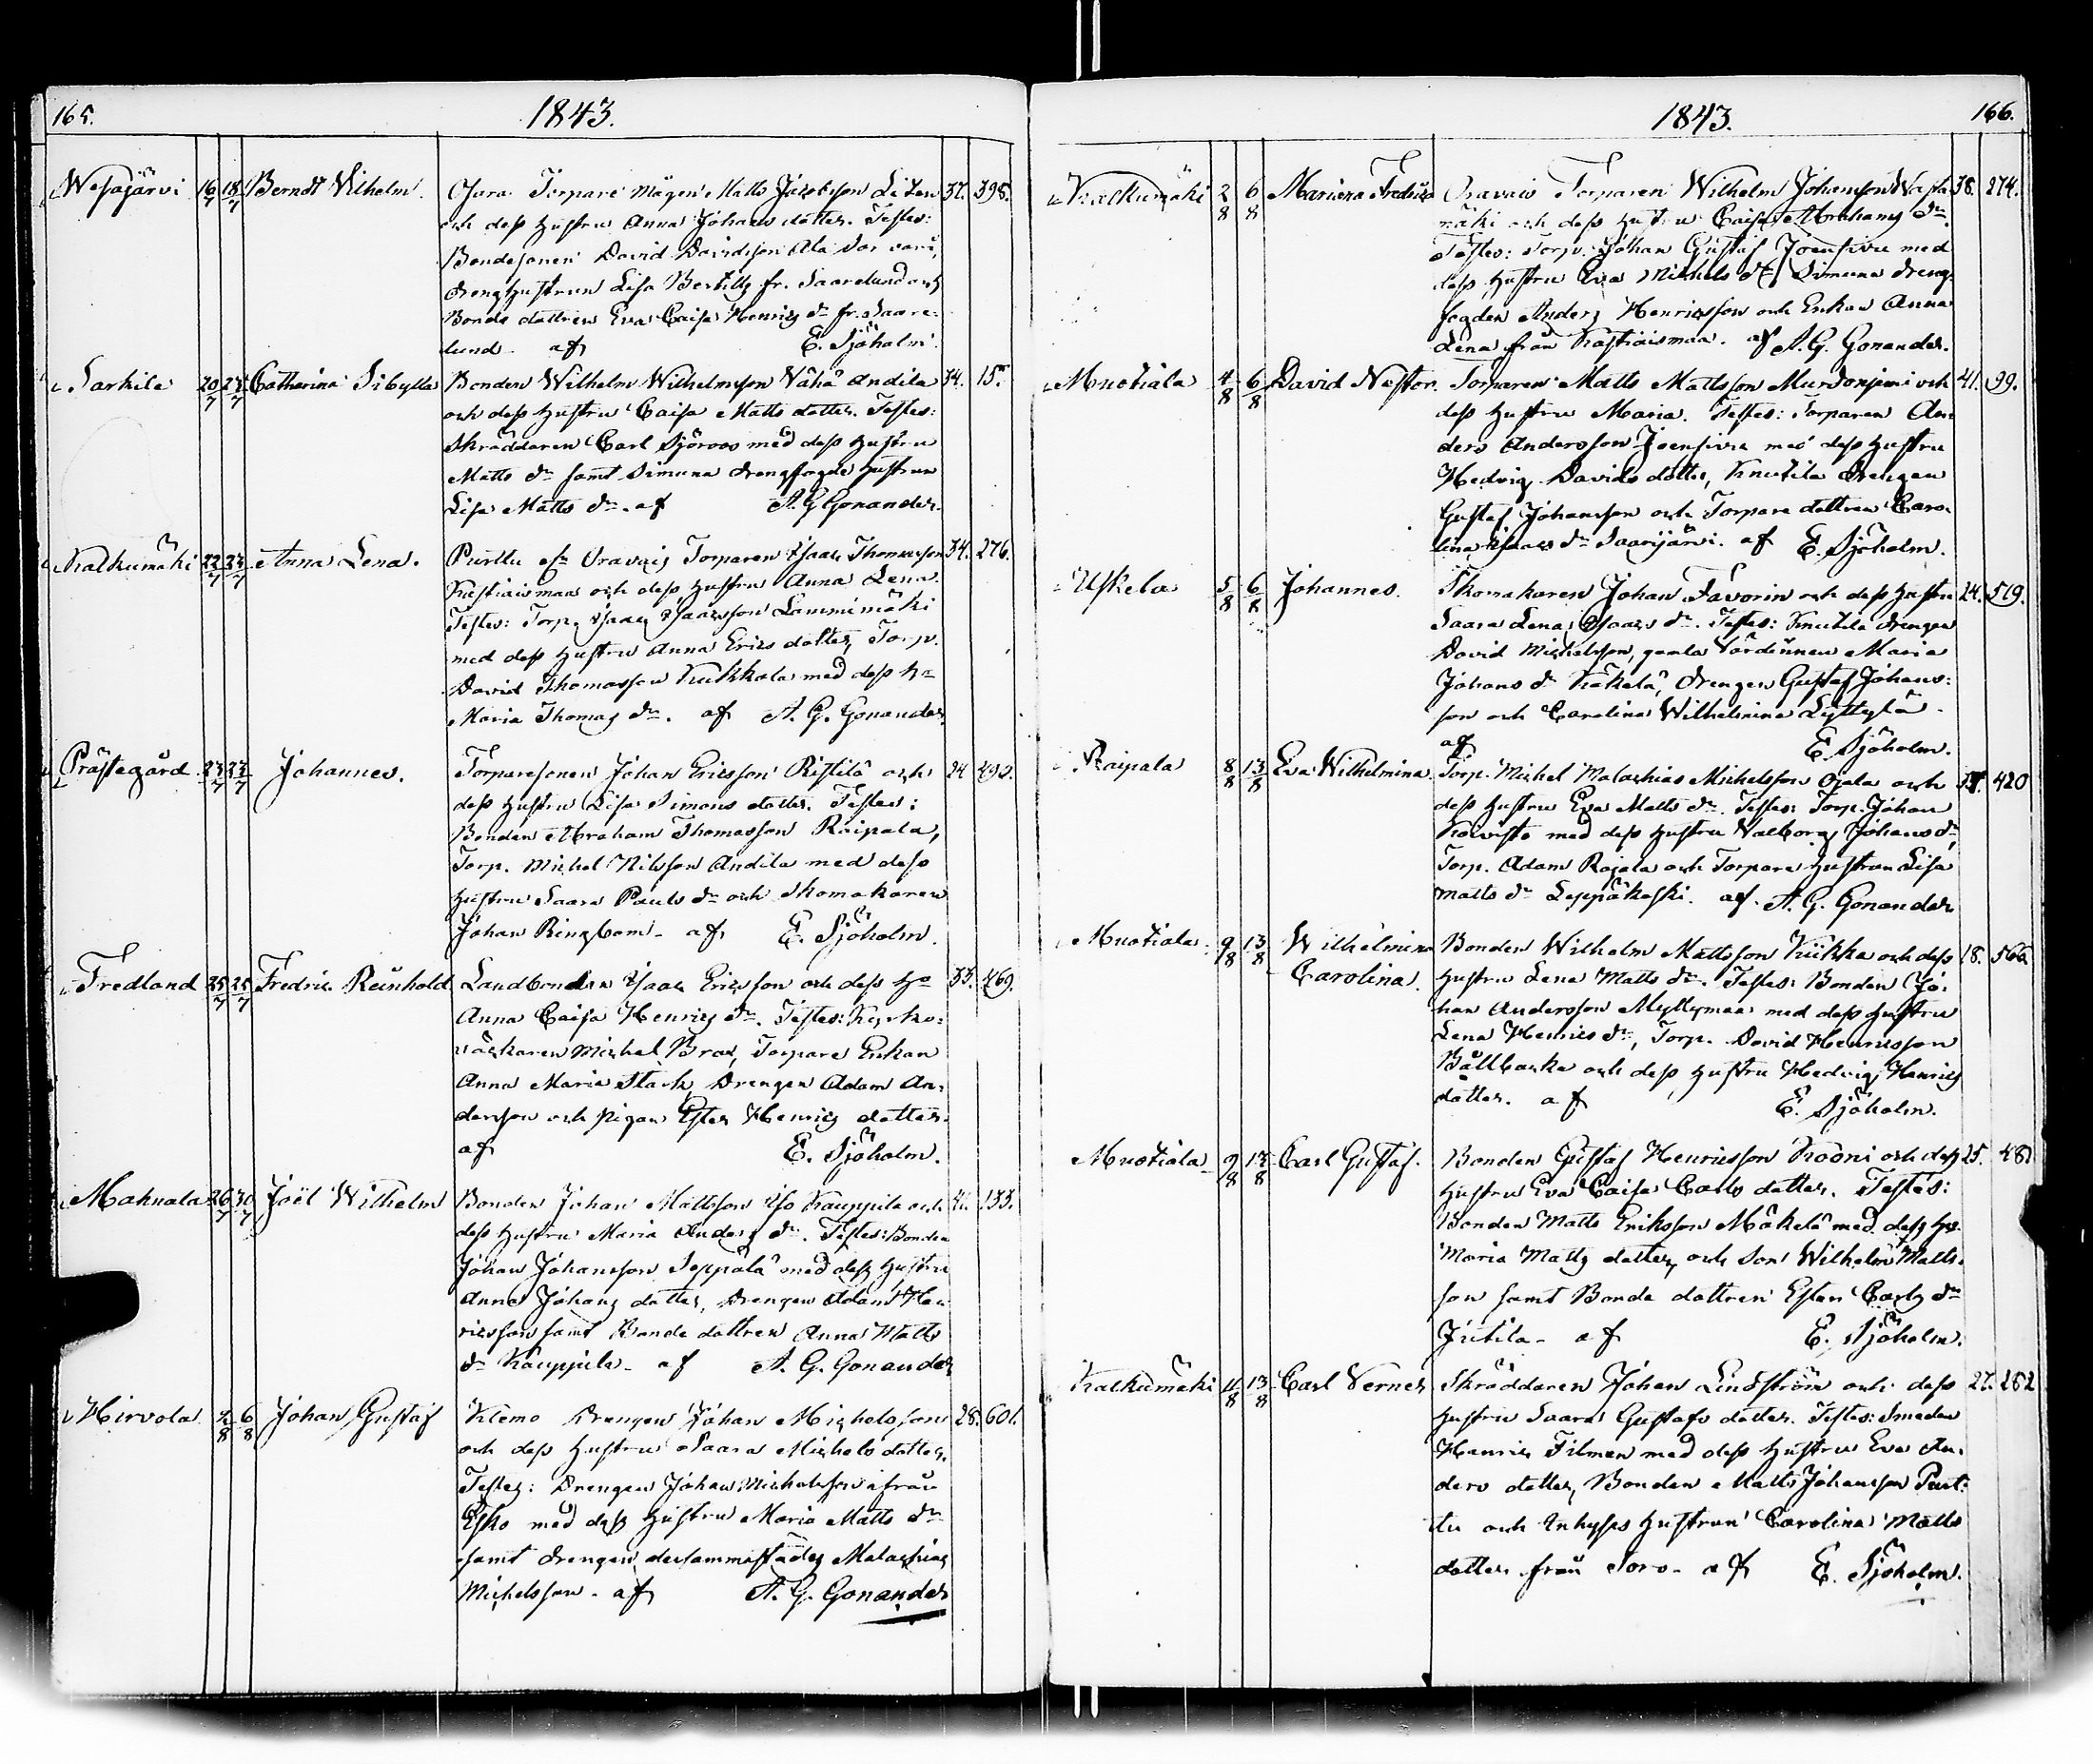 165.
1843.
Wesajärvi 16/7 18/7 Berndt Wilhelm. Ojara Torpare mågen Matts Jacobsson Liten 37. 398.
och dess hustru Anna Johans dotter. Testes:
Bondesonen David Davidsson Ala
drenghustrun Lisa Bertills fr. Saarelund och
Bonde dottren Eva Caisa Henrics dr fr. Saare-
lund. af E. Sjöholm.
Sarkila 20/7 Catharina Sibylla Bonden Wilhelm Wilhelmsson Vähä Andila 34. 15.
och dess hustru Caisa Matts dotter. Testes:
Skräddaren Carl Sjöroos med dess hustru
Matts dr samt Simuna drengfogde hustrun
Lisa Matts dr. af A. G. Gonander.
Kalkumäki 22/7 23/7 Anna Lena. Purttu Oravais Torparen Isaac Thomasson 34. 276.
Kustiaismaa och dess hustru Anna Lena.
Testes: Torp. Isaac Isaacsson Lammimäki
med dess hustru Anna Erics dotter, Torp.
David Thomasson Kukkola med dess h
Maria Thomas dr. af A. G. Gonander.
Prästegård 23/7 23/7 Johannes. Torparesonen Johan Ericsson Ristilä och 24
dess hustru Lisa Simons dotter. Testes:
Bonden Abraham Thomasson Raipala,
Torp. Michel Nilsson Andila med dess
hustru Saara Pauls dr och Skomakaren
Johan Ringbom. af E. Sjöholm.
Fredland 25/7 25/7 Fredric Reinhold Landbonden Isaac Ericsson och dess h 33. 469.
Anna Caisa Henrics dr. Testes: Kyrko-
väckaren Michel Brax, Torpare Enkan
Anna Maria Stark, Drengen Adam An-
dersson och pigan Ester Henrics dotter.
af E. Sjöholm.
Mahnala 26/7 30/7 Joël Wilhelm Bonden Johan Mattsson Iso Kauppila och 41. 133.
dess hustru Maria Anders dr. Testes: Bonden
Johan Johansson Seppälä med dess hustru
Anna Johans dotter, Drengen Adam Hen-
ricsson samt Bonde dottren Anna Matts
dr Kauppila. af A. G. Gonander
Hirvola 2/8 6/8 Johan Gustaf Klemo Drengen Johan Michelsson 28. 601.
och dess hustru Saara Michels dotter.
Testes: Drengen Johan Michelsson ifrån
Esko med dess hustru Maria Matts dr
samt drengen dersammastädes Malachias
Michelsson. af A. G. Gonander
1843.
166.
Kalkumäki 2/8 6/8 Mariana Fredrica Oravais Torparen Wilhelm Johansson 38. 274.
mäki och dess hustru Caisa Abrahams dr.
Testes: Torp. Johan Gustaf Joensivu med
dess hustru Eva Michels dr, Simuna dreng-
fogden Anders Henricsson och Enkan Anna
Lena från Kustiaismaa. af A. G. Gonander.
Muotiala 4/8 6/8 David Nestor. Torparen Matts Mattsson Murdonjemi och 41. 99.
dess hustru Maria. Testes: Torparen An-
ders Andersson Joensivu med dess hustru
Hedvig Davids dotter, Knutila drengen
Gustaf Johansson och Torpare dottren Caro-
lina Isaacs dr Saarijärvi. af E. Sjöholm.
Uskela 5/8 6/8 Johannes. Skomakaren Johan Favorin och dess hustru 24. 519.
Saara Lena Isaacs dr. Testes: Knutila drengen
David Michelsson, gamla Värdinnan Maria
Johans dr Käkelä, drengen Gustaf Johans-
son och Carolina Wilhelmina Lyttylä.
af E. Sjöholm.
Raipala 8/8 13/8 Eva Wilhelmina Torp. Michel Malachias Michelsson Ojala och 420
dess hustru Eva Matts dr. Testes: Torp. Johan
Koivisto med dess hustru Valborg Johans dr,
Torp. Adam Rajala och Torpare hustrun Lisa
Matts dr Leppäkoski. af A. G. Gonander.
Muotiala 9/8 13/8 Wilhelmina Bonden Wilhelm Mattsson Kiikka och dess 18. 566.
Carolina. hustru Lena Matts dr. Testes: Bonden Jo-
han Andersson Myllymaa med dess hustru
Lena Henrics dr, Torp. David Henricsson
Bållbacka och dess hustru Hedvig Henrics
dotter. af E. Sjöholm.
Muotiala 9/8 13/8 Carl Gustaf. Bonden Gustaf Henricsson Rodni och dess 25. 481
hustru Eva Caisa Carls dotter. Testes:
Bonden Matts Eriksson Mäkelä med dess hu.
Maria Matts dotter, och Son Wilhelm Matts-
son samt Bonde dottren Ester Carls dr
Jutila. af E. Sjöholm.
Kalkumäki 11/8 13/8 Carl Verner Skräddaren Johan Lindström och dess 27. 262
hustru Saara Gustafs dotter. Testes: Smeden
Henric Filman med dess hustru Eva An-
ders dotter, Bonden Matts Johansson Purt-
tu och Inhyses hustrun Carolina Matts
dotter från Soro. af E. Sjöholm.